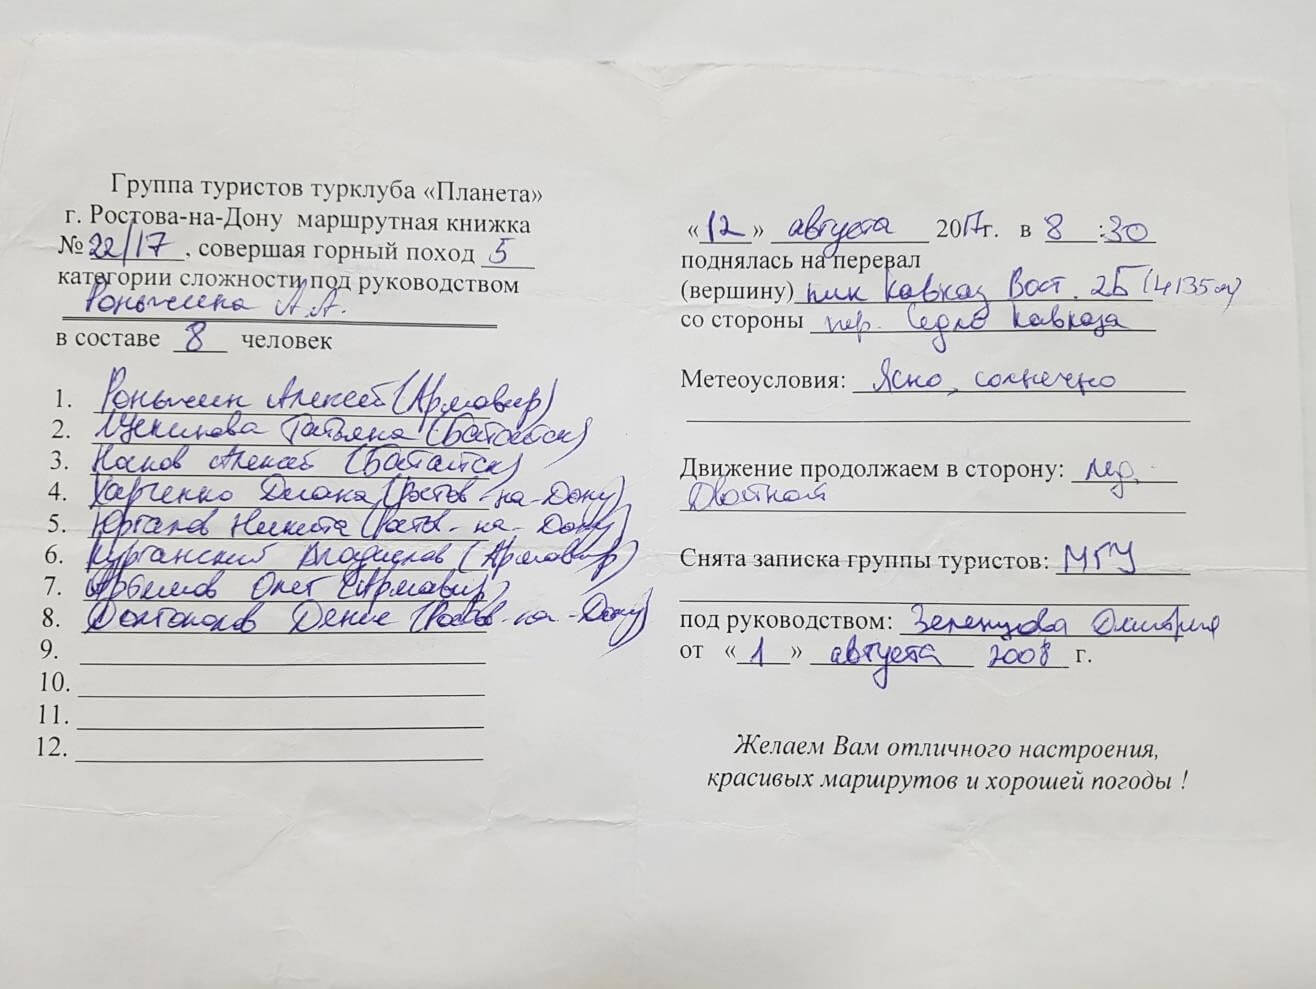 Группа туристов турклуба «Планета»
г. Ростова-на-Дону маршрутная книжка
№ 22/17, совершая горный поход 5
категории сложности под руководством
Роньжина А.А.
в составе 8 человек
1. Алексей (Армавир)
2. Татьяна (Батайск)
3. Носков Алексей (Батайск)
4. Харченко Диана (Ростов-на-Дону)
5. Никита (Ростов-на-Дону)
6. Курганский Владислав (Армавир)
7. Олег (Армавир)
8. Денис (Ростов-на-Дону)
9.
10.
11.
12.
«12» августа 2017г. в 8:30
поднялась на перевал
(вершину) пик Кавказ Вост. 2Б (4135м)
со стороны пер. Седло Кавказа
Метеоусловия: Ясно, солнечно
Движение продолжаем в сторону: лед.
Двойной
Снята записка группы туристов: МГУ
под руководством: Зеленцова Дмитрия
от «1» августа 2008 г.
Желаем Вам отличного настроения,
красивых маршрутов и хорошей погоды !